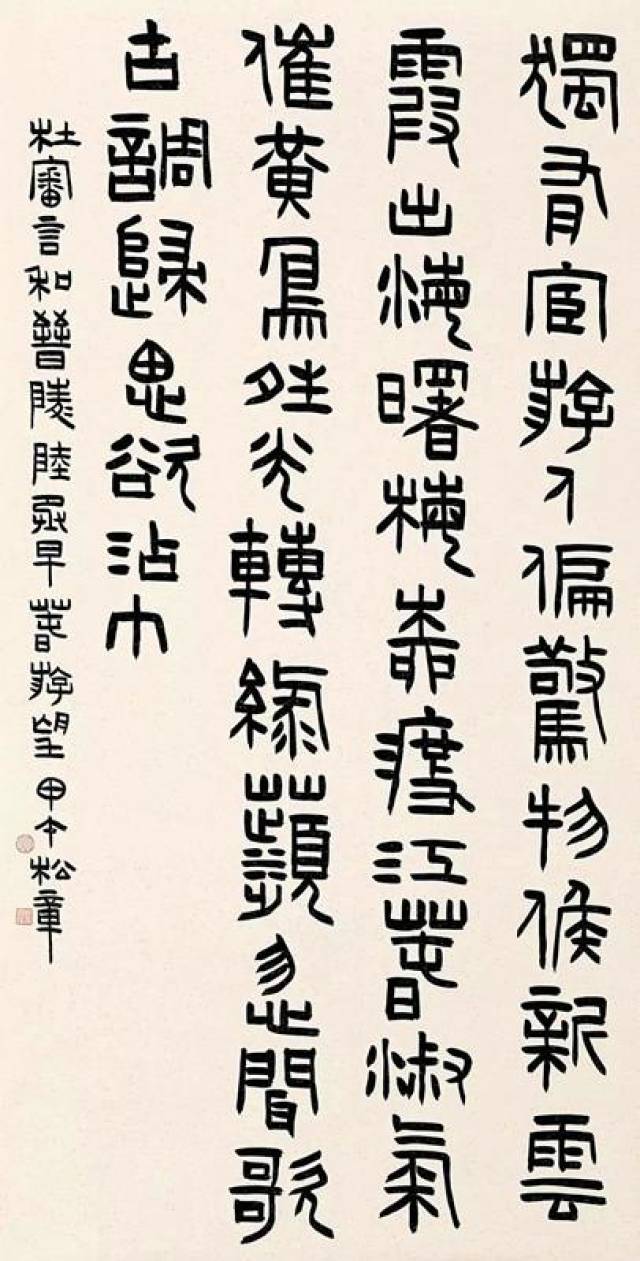 獨有宦游人偏驚物候新雲
霞出海曙梅柳渡江春淑氣
催黃鳥晴光轉綠蘋忽聞歌
古調歸思欲沾巾
杜審言和晉陵陸丞早春游望 甲午 松章